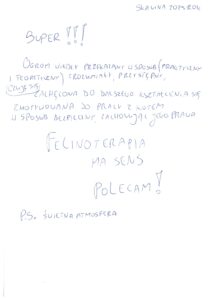 SUPER !!!
OGROM WIEDZY PRZEKAZANY W SPOSÓB (PRAKTYCZNY
I TEORETYCZNY) ZROZUMIAŁY, PRZYSTĘPNY,
CZUJĘ SIĘ
ZACHĘCONA DO DALSZEGO KSZTAŁCENIA SIĘ
ZMOTYWOWANA DO PRACY Z KOTEM
W SPOSÓB BEZPIECZNY, ZACHOWUJĄC JEGO PRAWA
FELINOTERAPIA
MA SENS
POLECAM!
P.S. ŚWIETNA ATMOSFERA